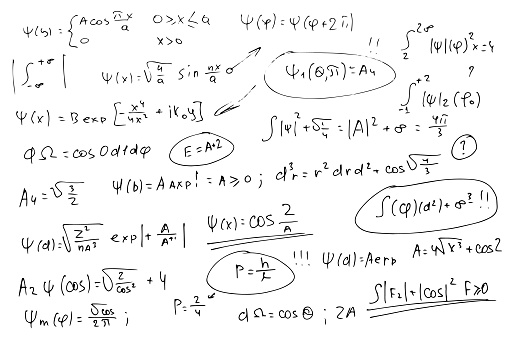 ψ(s) = { A cos πx/a 0 > x ≤ a
0 x > 0
ψ(φ) = ψ(φ + 2π)
!!
∫ 2 2∞ |ψ|(φ)² x = 4
| ∫ -∞ +∞ |
ψ(x) = √4/a sin nx/a 0
ψ₁(Θ,π) = A₄
?
∫ -1 +2 |ψ|₂(φ₀)
ψ(x) = B exp[-x⁴/4x² + iK₀y]
∫|ψ|² + √1/4 = |A|² + ∞ = 4π/3
φΩ = cos 0 d1dφ
E = A+2
?
A₄ = √3/2
ψ(b) = A Axp! = A ≥ 0 ; d³r = r² dr d² + cos √4/3
∫(φ)(d²) + ∞³ !!
ψ(d) = √Z²/nA³ exp|+ A/A⁺¹|
ψ(x) = cos 2/A
P = h/t !!!
ψ(d) = A exp
A = 4√x³ + cos2
A₂ ψ(cos) = √2/cos² + 4
∫|F₂| + |cos|² F ≥ 0
ψm(φ) = √cos/2π ;
P = 2/4 ∞
dΩ = cos Θ ; 2A